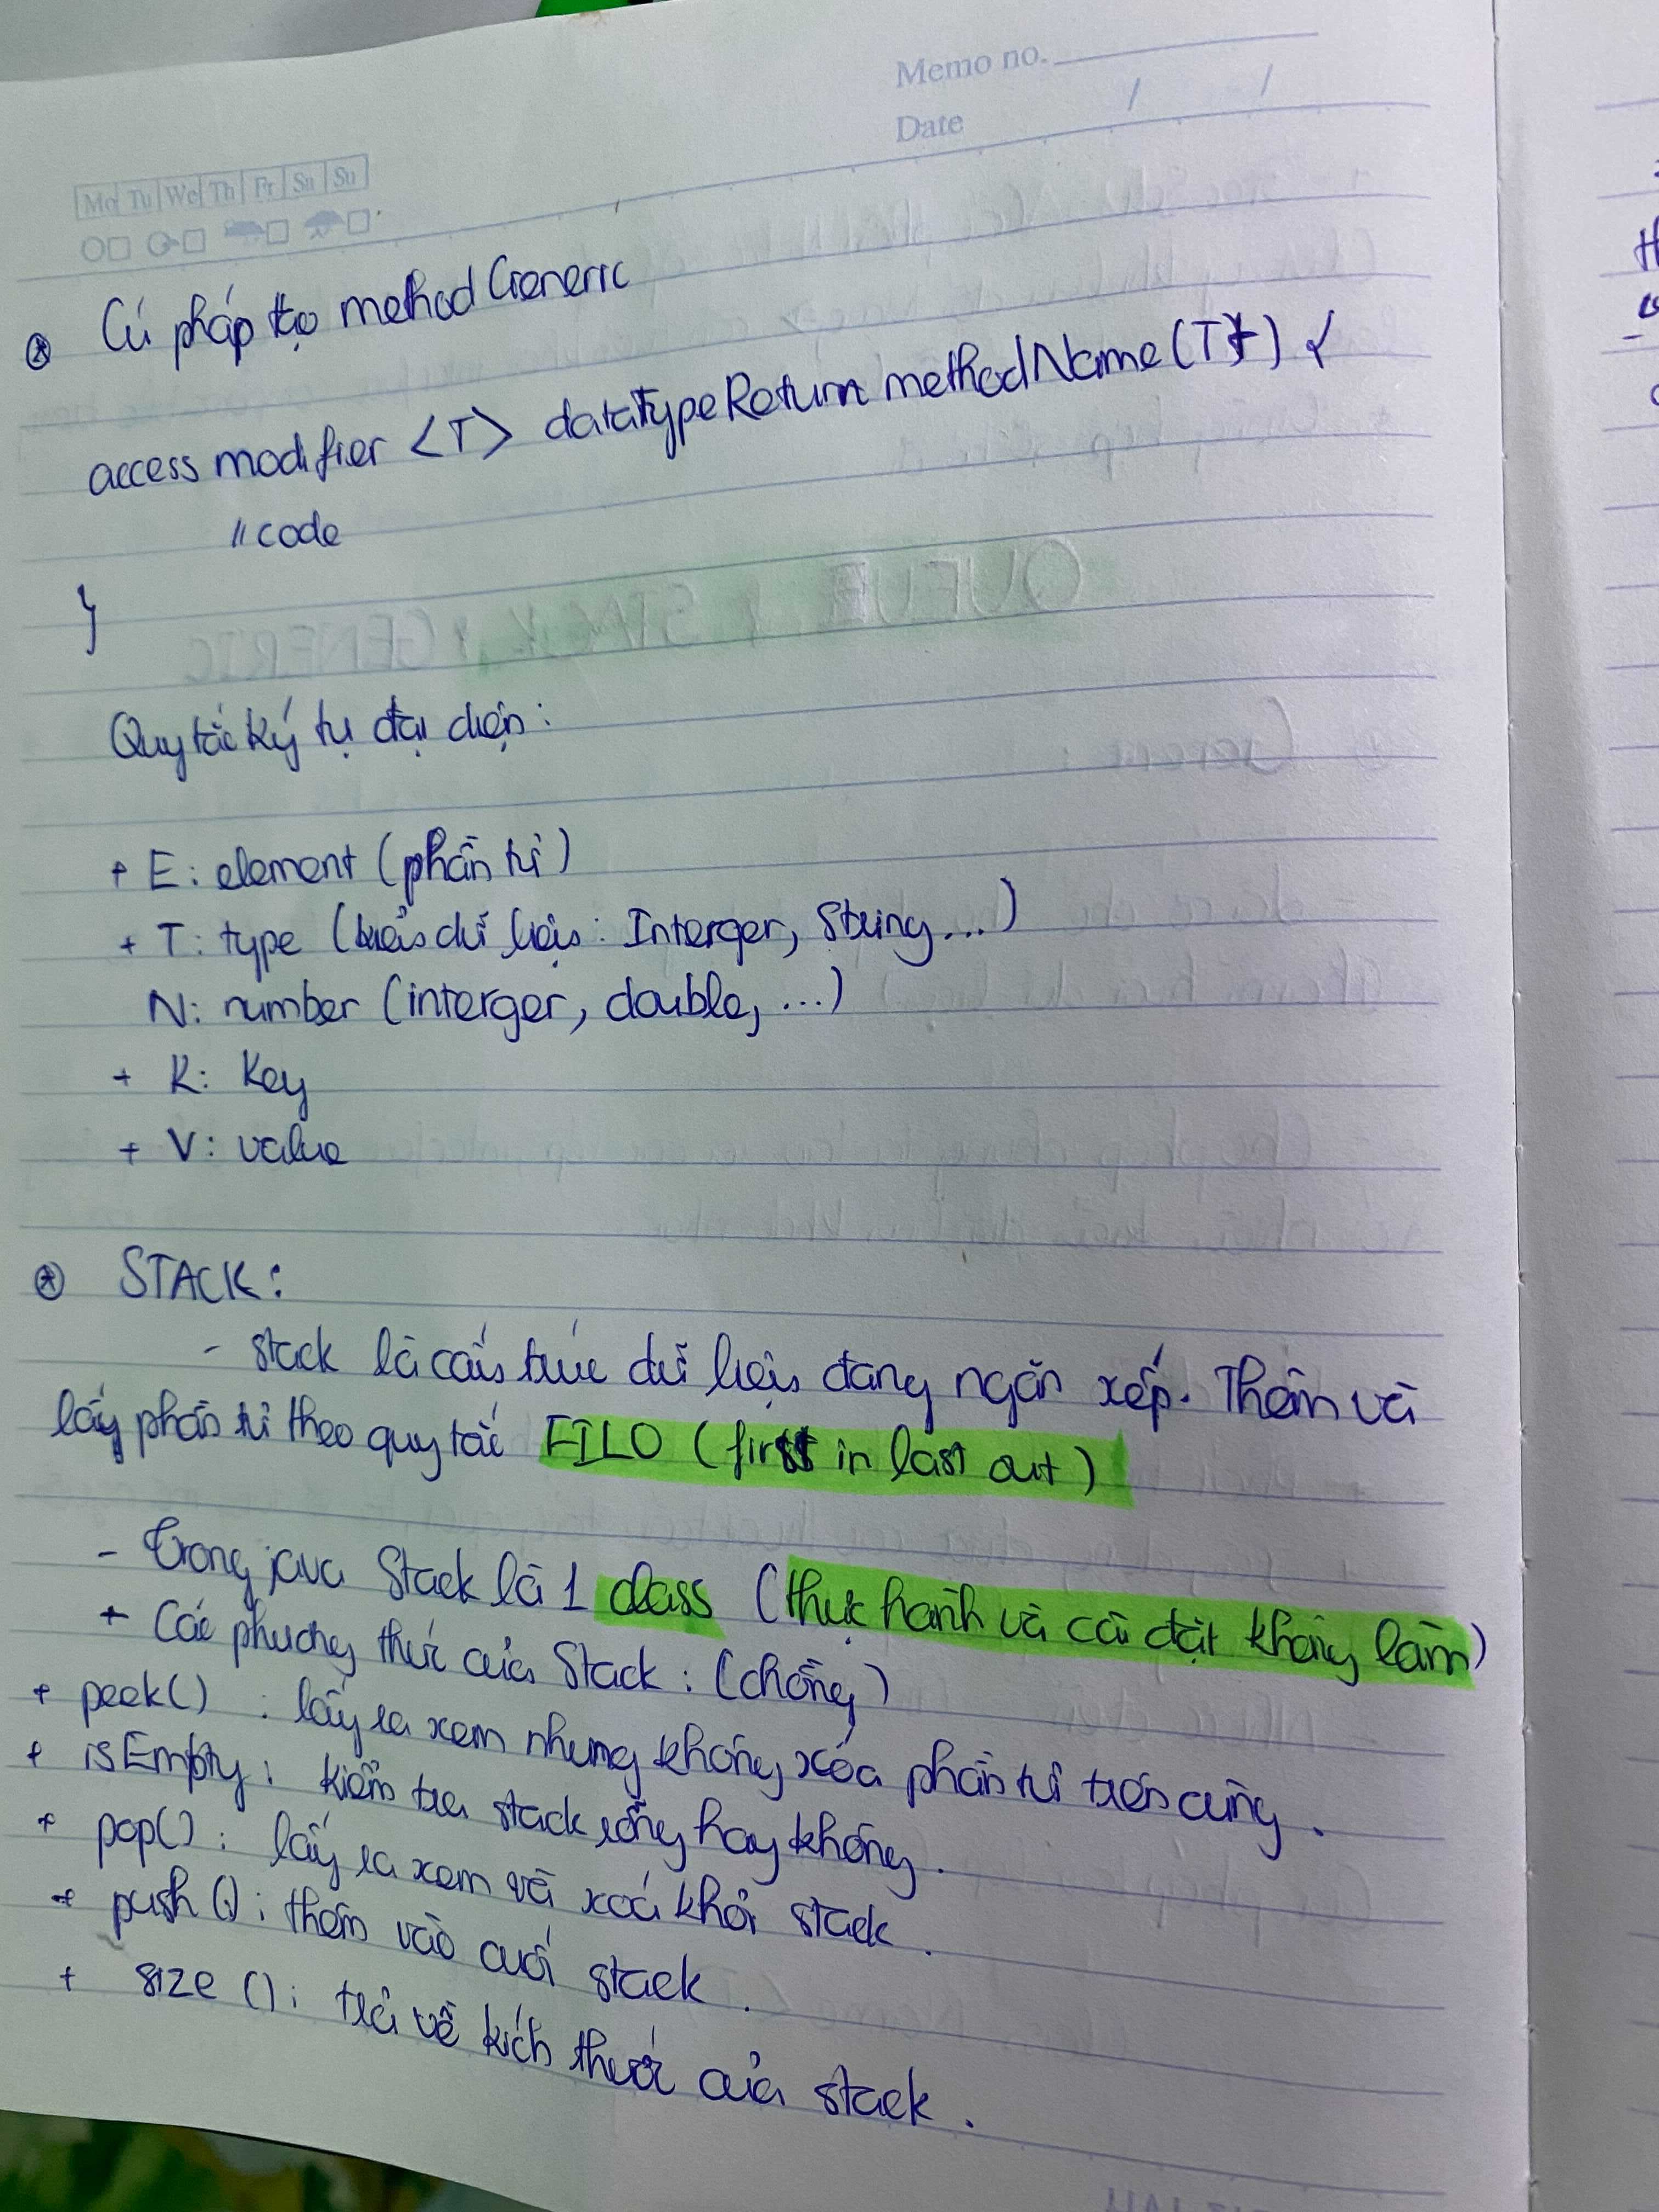 Memo no.
Date / /
Mo Tu We Th Fr Sa Su
Cú pháp tạo method Generic
access modifier <T> dataTypeReturn methodName (T t) {
// code
}
Quy tắc ký tự đại diện:
+ E: element (phần tử)
+ T: type (kiểu dữ liệu: Interger, String...)
N: number (interger, double, ...)
+ K: Key
+ V: value
STACK:
- Stack là cấu trúc dữ liệu dạng ngăn xếp. Thêm và
lấy phần tử theo quy tắc FILO (first in last out)
- Trong java Stack là 1 class (thực hành và cài đặt không làm)
+ Các phương thức của Stack: (chồng)
+ peek() : lấy ra xem nhưng không xóa phần tử trên cùng.
+ isEmpty: kiểm tra stack rỗng hay không.
+ pop() : lấy ra xem và xoá khỏi stack.
+ push(): thêm vào cuối stack.
+ size (): trả về kích thước của stack.